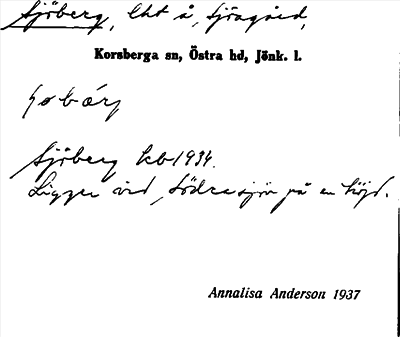 Sjöberg, lht å, Sjögård,
Korsberga sn, Östra hd, Jönk. l.
Sjöberg kb 1934.
Ligger vid Södra sjön på en höjd.
Annalisa Anderson 1937